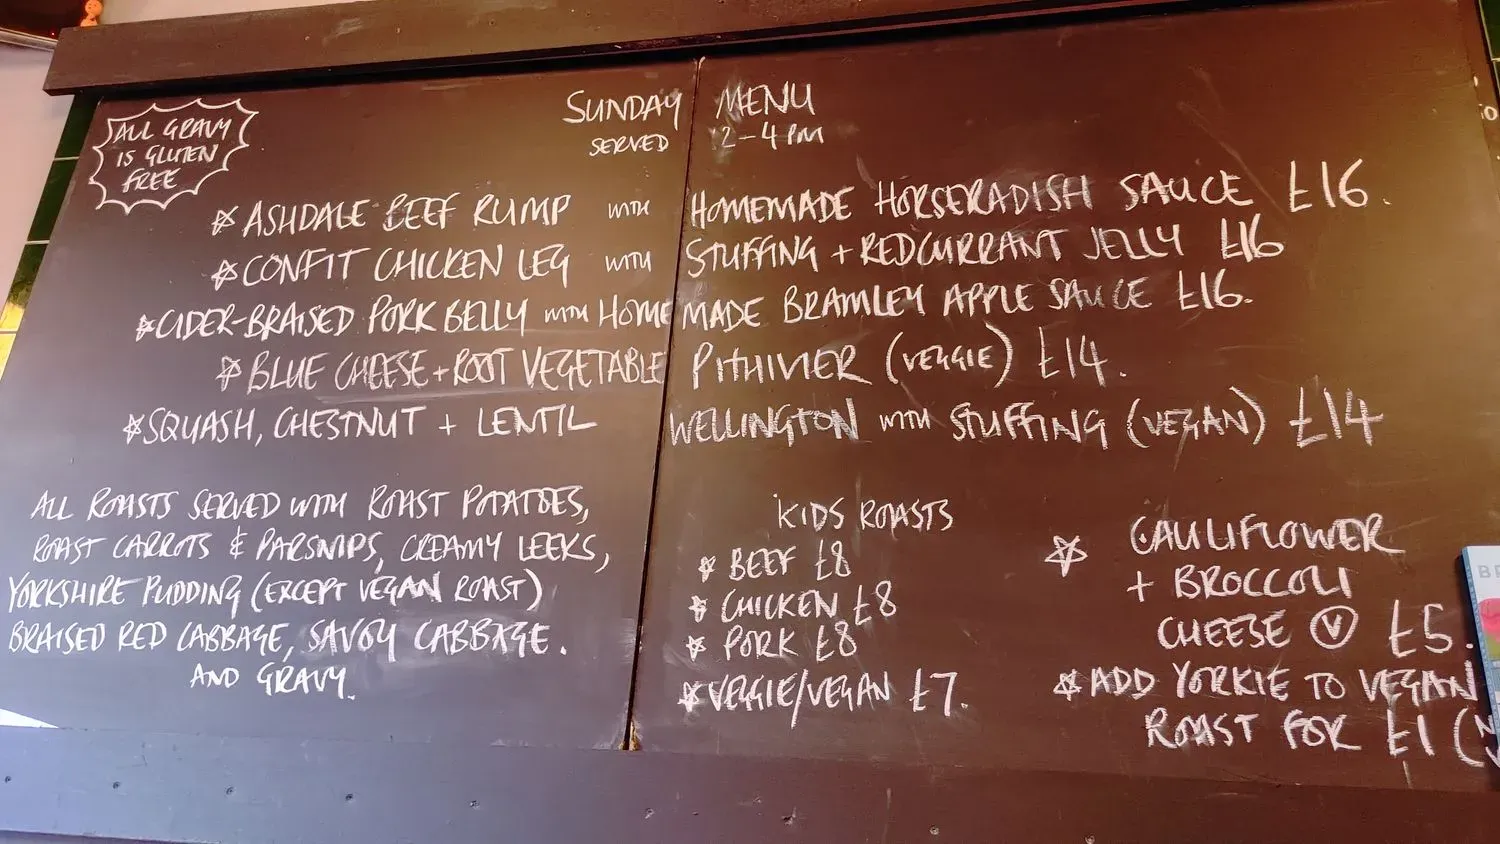 ALL GRAVY
IS GLUTEN
FREE
SUNDAY MENU
SERVED 12-4 PM
ASHDALE BEEF RUMP WITH HOMEMADE HORSERADISH SAUCE £16.
CONFIT CHICKEN LEG WITH STUFFING + REDCURRANT JELLY £16
CIDER-BRAISED PORK BELLY WITH HOMEMADE BRAMLEY APPLE SAUCE £16.
BLUE CHEESE + ROOT VEGETABLE PITHIVIER (VEGGIE) £14.
SQUASH, CHESTNUT + LENTIL WELLINGTON WITH STUFFING (VEGAN) £14
ALL ROASTS SERVED WITH ROAST POTATOES,
ROAST CARROTS & PARSNIPS, CREAMY LEEKS,
YORKSHIRE PUDDING (EXCEPT VEGAN ROAST)
BRAISED RED CABBAGE, SAVOY CABBAGE.
AND GRAVY.
KIDS ROASTS
BEEF £8
CHICKEN £8
PORK £8
VEGGIE/VEGAN £7.
CAULIFLOWER
+ BROCCOLI
CHEESE V £5.
ADD YORKIE TO VEGAN
ROAST FOR £1